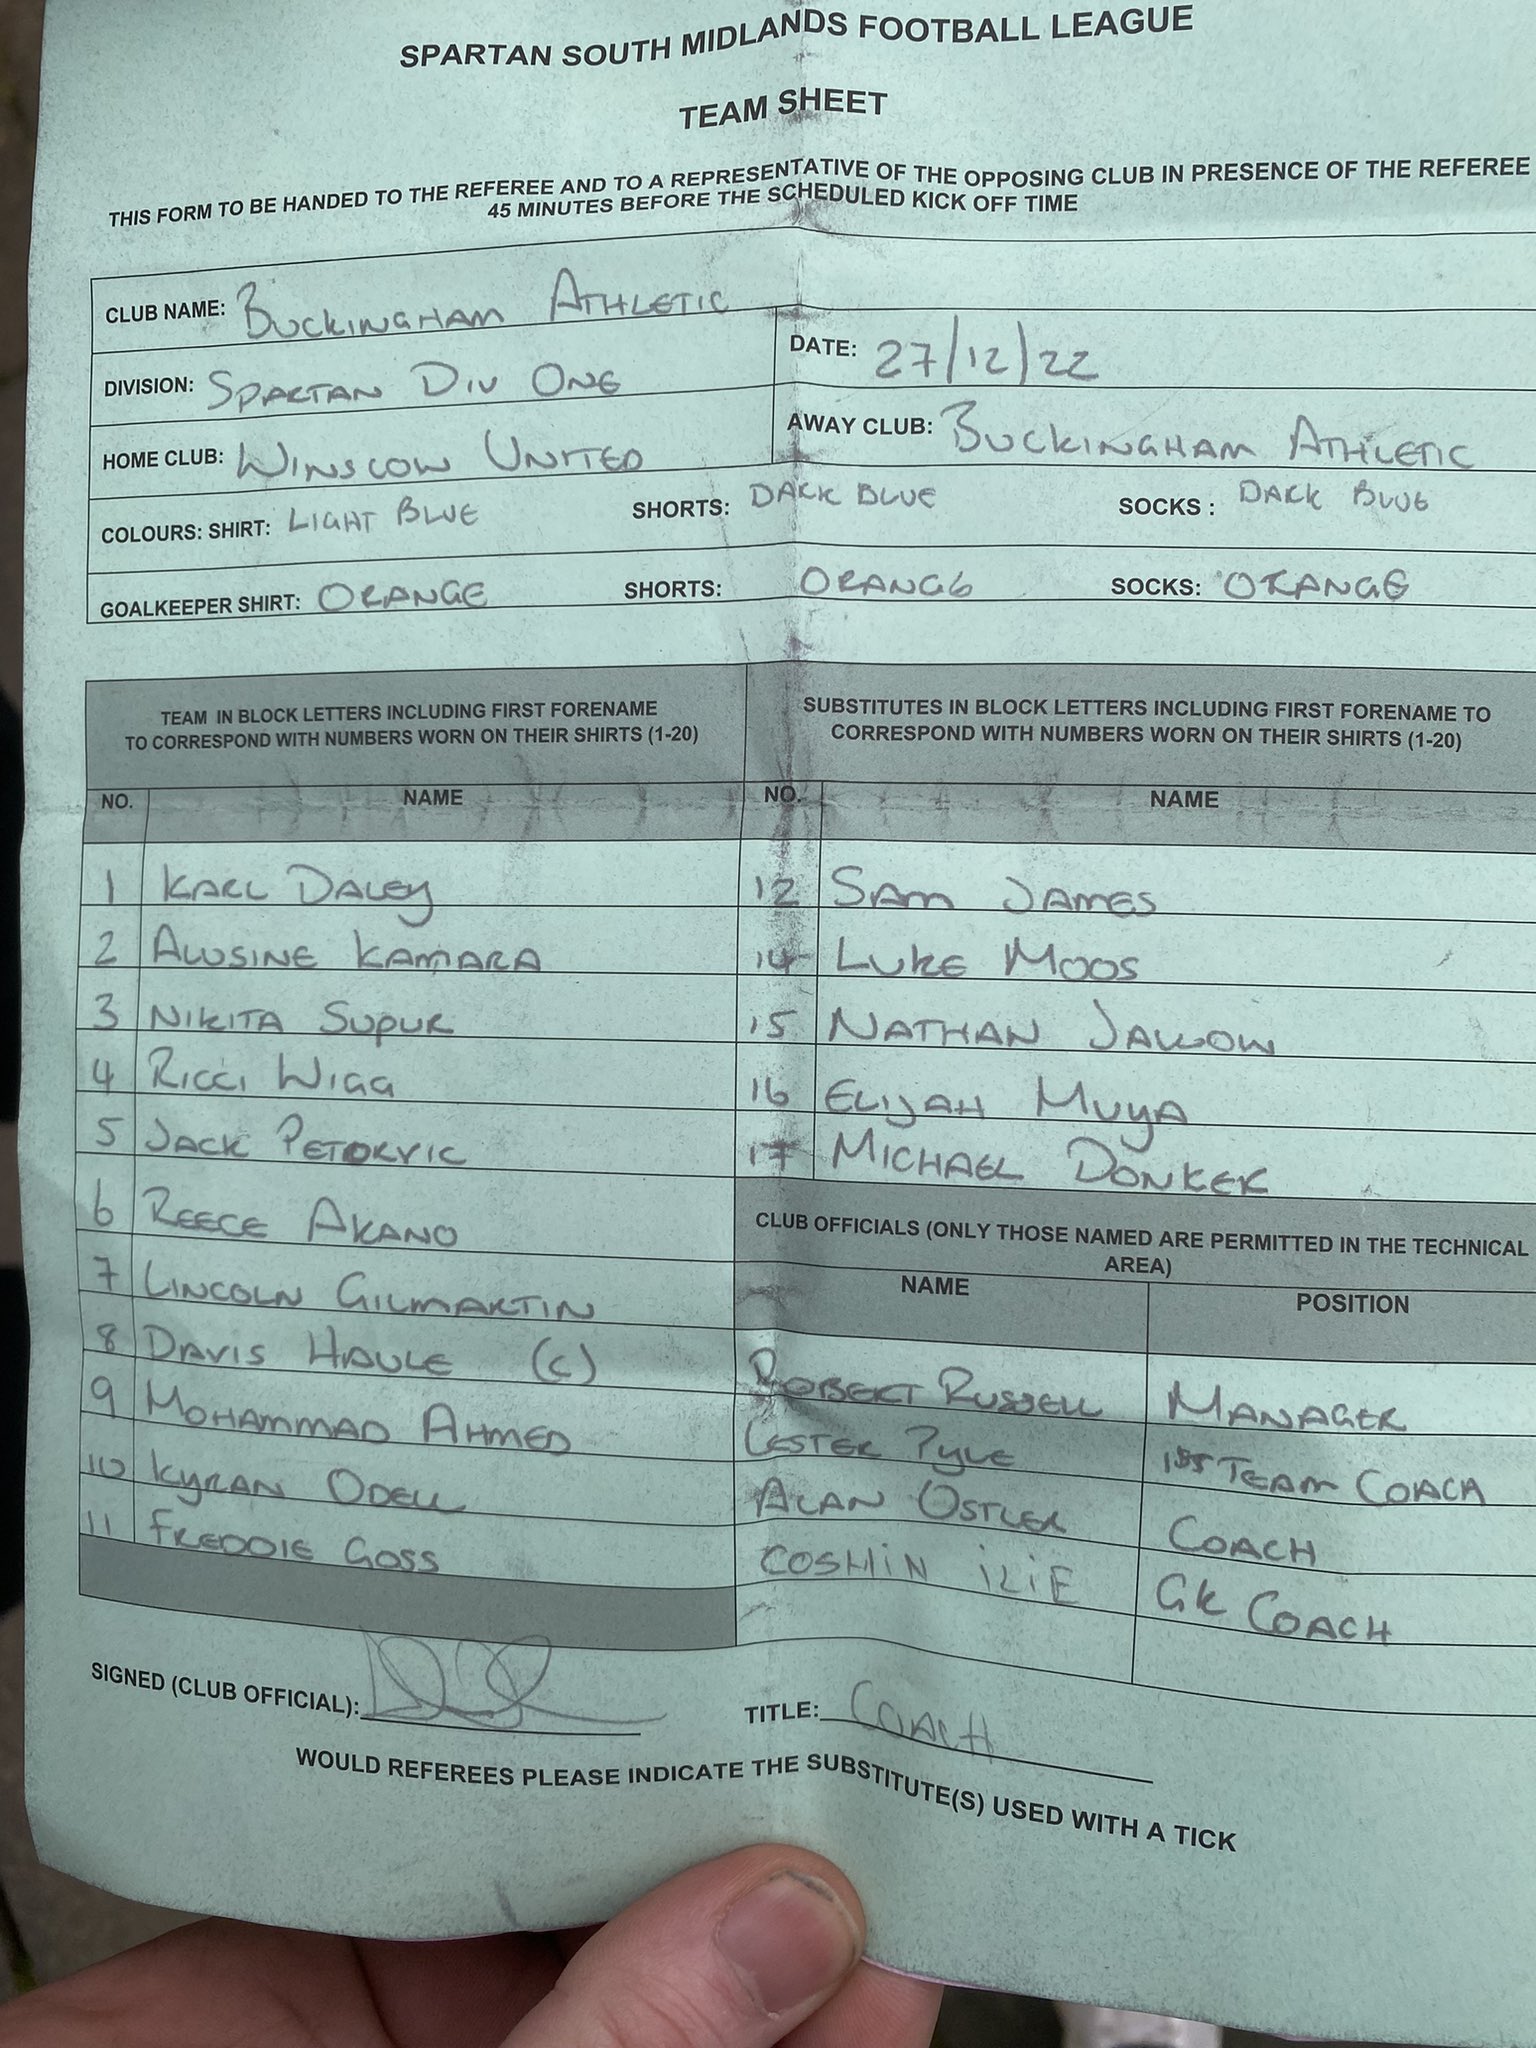 SPARTAN SOUTH MIDLANDS FOOTBALL LEAGUE
TEAM SHEET
THIS FORM TO BE HANDED TO THE REFEREE AND TO A REPRESENTATIVE OF THE OPPOSING CLUB IN PRESENCE OF THE REFEREE
45 MINUTES BEFORE THE SCHEDULED KICK OFF TIME
CLUB NAME: BUCKINGHAM ATHLETIC
DIVISION: SPARTAN DIV ONE
DATE: 27/12/22
HOME CLUB: WINSLOW UNITED
AWAY CLUB: BUCKINGHAM ATHLETIC
COLOURS: SHIRT: LIGHT BLUE SHORTS: DARK BLUE SOCKS : DARK BLUE
GOALKEEPER SHIRT: ORANGE SHORTS: ORANGE SOCKS: ORANGE
TEAM IN BLOCK LETTERS INCLUDING FIRST FORENAME
TO CORRESPOND WITH NUMBERS WORN ON THEIR SHIRTS (1-20)
NO. NAME
1 KARL DALEY
2 ALUSINE KAMARA
3 NIKITA SUPUR
4 RICCI WIGG
5 JACK PETORVIC
6 REECE AKANO
7 LINCOLN GILMARTIN
8 DAVIS HAULE (C)
9 MOHAMMAD AHMED
10 KYRAN ODELL
11 FREDDIE GOSS
SUBSTITUTES IN BLOCK LETTERS INCLUDING FIRST FORENAME TO
CORRESPOND WITH NUMBERS WORN ON THEIR SHIRTS (1-20)
NO. NAME
12 SAM JAMES
14 LUKE MOOS
15 NATHAN JALLOW
16 ELIJAH MUYA
17 MICHAEL DONKER
CLUB OFFICIALS (ONLY THOSE NAMED ARE PERMITTED IN THE TECHNICAL
AREA)
NAME POSITION
ROBERT RUSSELL MANAGER
LESTER PYLE 1ST TEAM COACH
ALAN OSTLER COACH
COSHIN ILIE GK COACH
SIGNED (CLUB OFFICIAL):
TITLE: COACH
WOULD REFEREES PLEASE INDICATE THE SUBSTITUTE(S) USED WITH A TICK